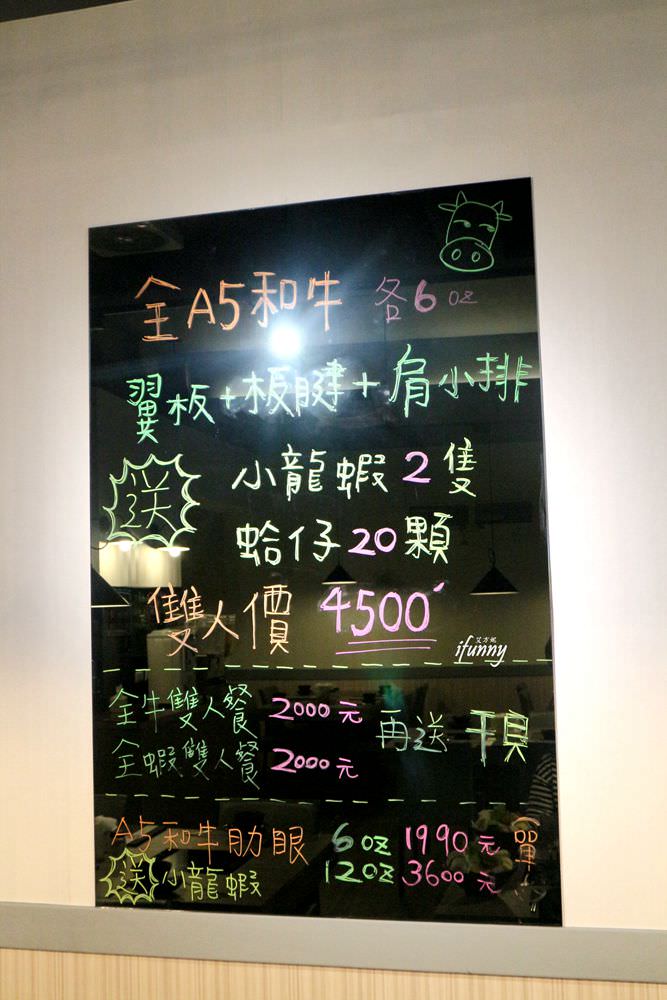 全A5和牛 各6oz
翼板+板腱+肩小排
送 小龍蝦2隻
蛤仔20顆
雙人價 4500
艾方妮
ifunny
全牛雙人餐 2000元 再送 干貝
全蝦雙人餐 2000元
A5和牛肋眼 6oz 1990元
送 小龍蝦 12oz 3600元
單